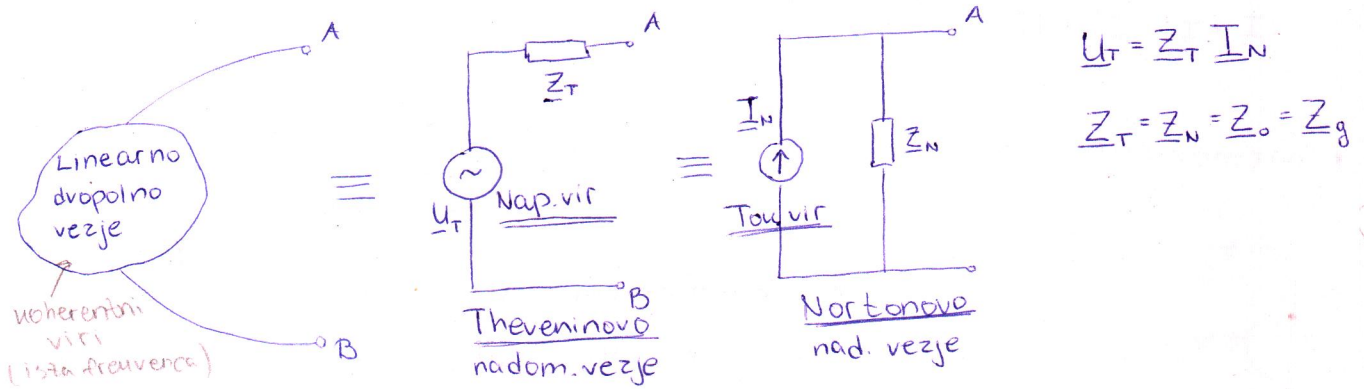 A
Linearno
dvopolno
vezje
B
koherentni
viri
(ista frekvenca)
≡
A
Z_T
U_T
~
Nap. vir
B
Theveninovo
nadom. vezje
≡
A
I_N
Z_N
Tok. vir
Nortonovo
nad. vezje
U_T = Z_T I_N
Z_T = Z_N = Z_o = Z_g